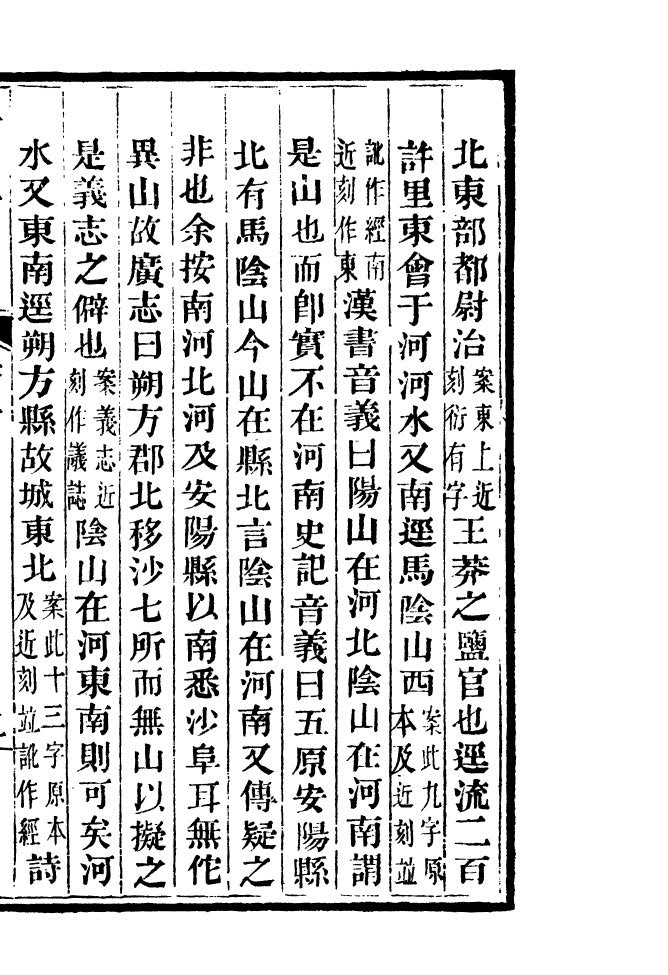 北東部都尉治案東上近刻衍有字王莽之鹽官也逕流二百
許里東會于河河水又南逕馬陰山西案此九字原本及近刻並
訛作經南近刻作東漢書音義曰陽山在河北陰山在河南謂
是山也而卽實不在河南史記音義曰五原安陽縣
北有馬陰山今山在縣北言陰山在河南又傳疑之
非也余按南河北河及安陽縣以南悉沙阜耳無佗
異山故廣志曰朔方郡北移沙七所而無山以擬之
是義志之僻也案義志近刻作議誌陰山在河東南則可矣河
水又東南逕朔方縣故城東北案此十三字原本及近刻並訛作經詩